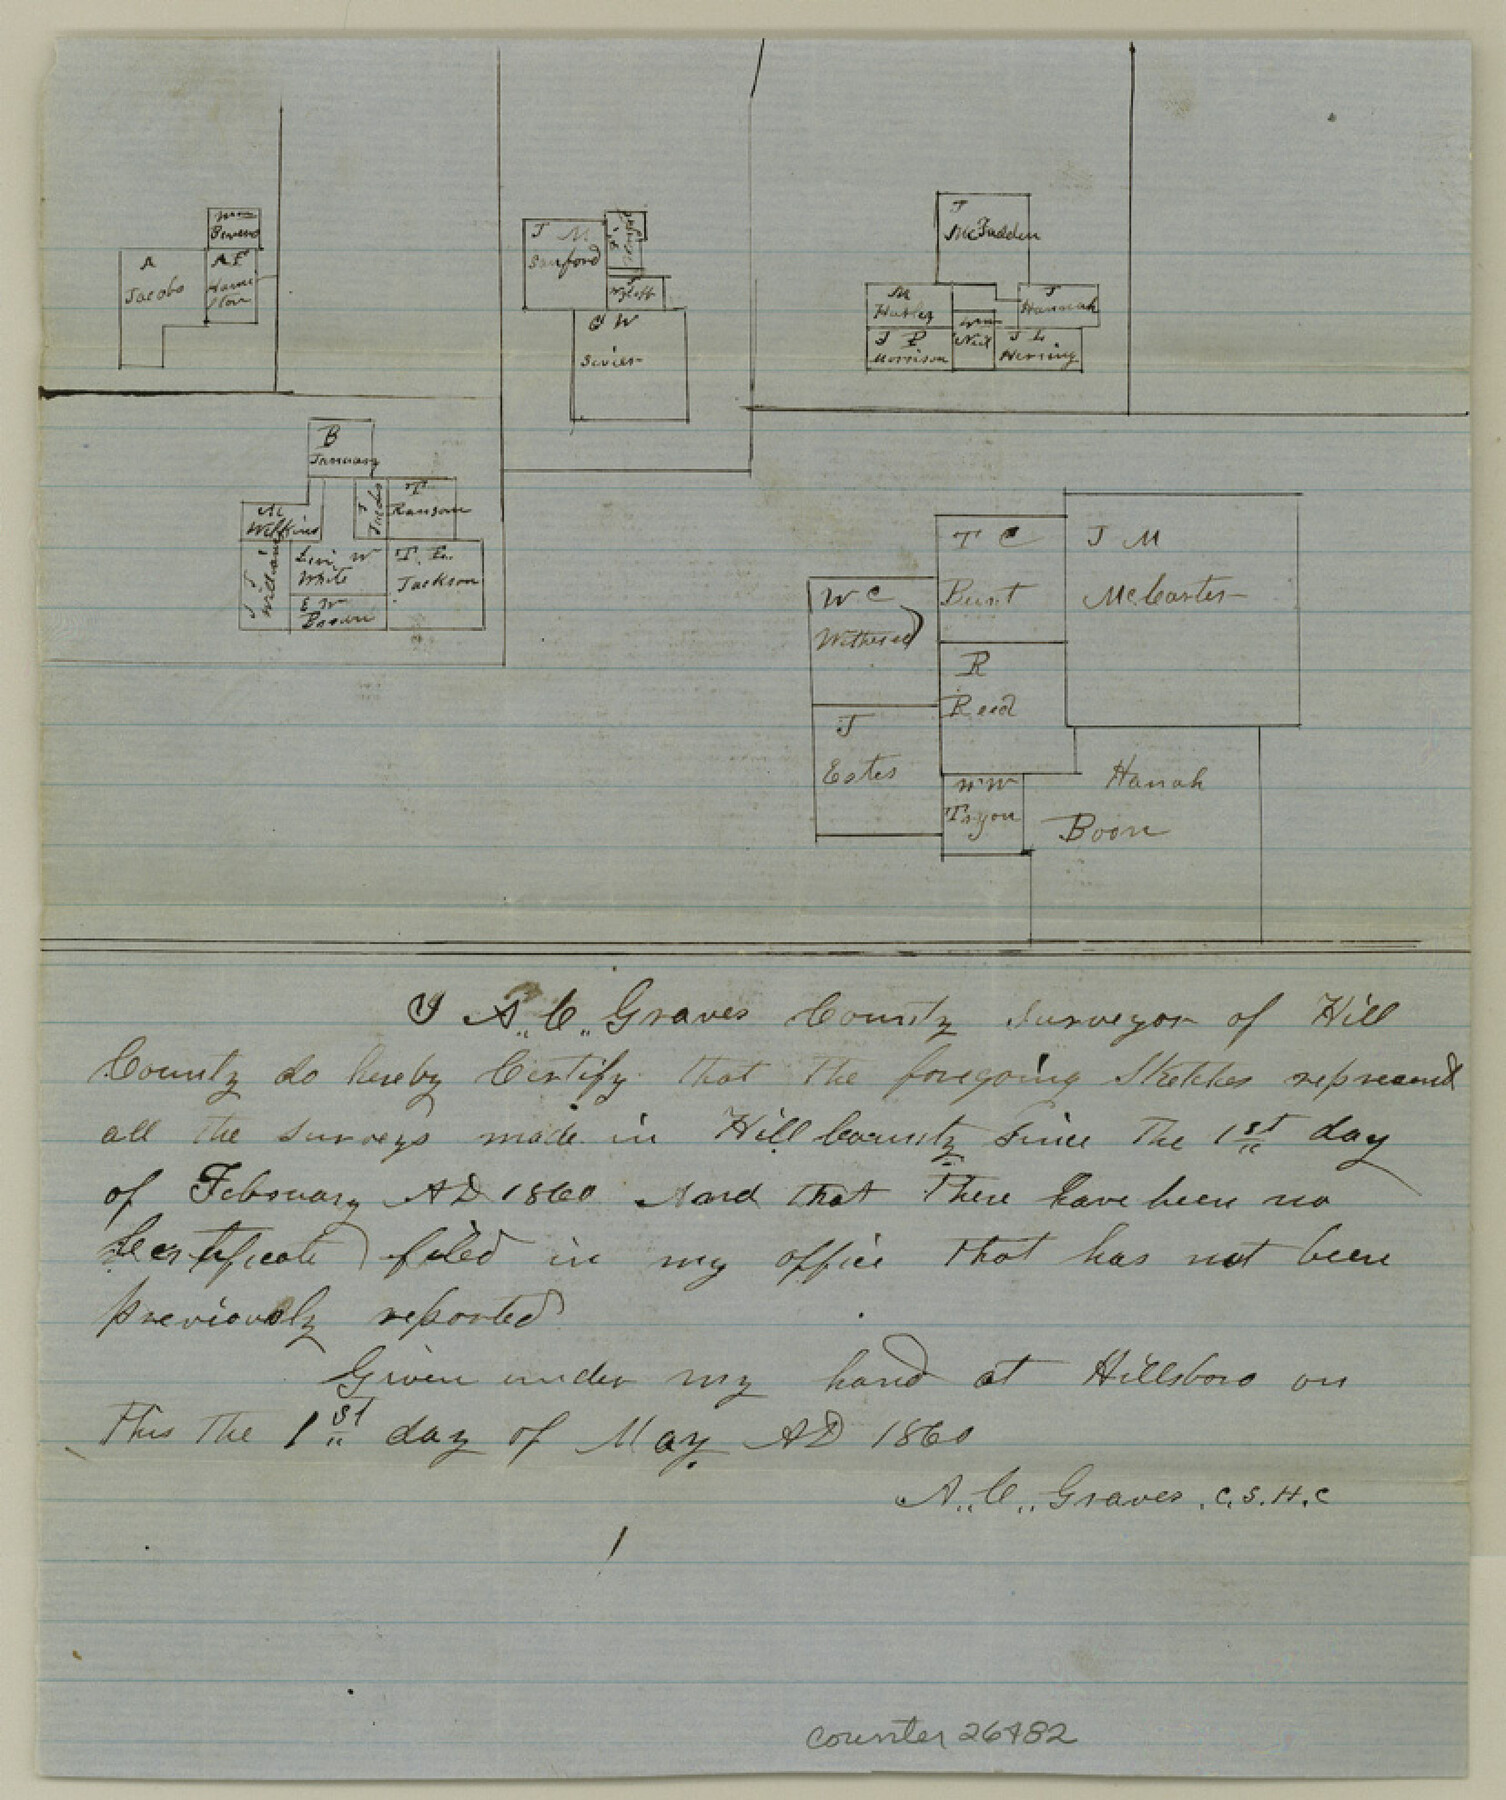 Wm
Bivens
A
Jacobs
A F
Hamilton
J M
Sanford
Wyleff
G W
Sevier
J
McFadden
M
Hatley
J
Hannah
J P
Morrison
Wm
Neil
J L
Herring
B
January
M
Wilkins
J
Jacobs
T
Ransom
J J
Williams
Levi W
White
T. L.
Jackson
E W
Brown
T C
Bunt
J M
McCarter
W C
Withered
R
Reed
J
Estes
W W
Tryon
Hanah
Boon
I A,, C,, Graves County Surveyor of Hill
County do hereby Certify that the foregoing Sketches represent
all the surveys made in Hill County Since the 1st day
of February AD 1860 And that There have been no
Certificate filed in my office that has not been
previously reported
Given under my hand at Hillsboro on
This the 1st day of May AD 1860
A,, C,, Graves, C. S. H. C
counter 26482